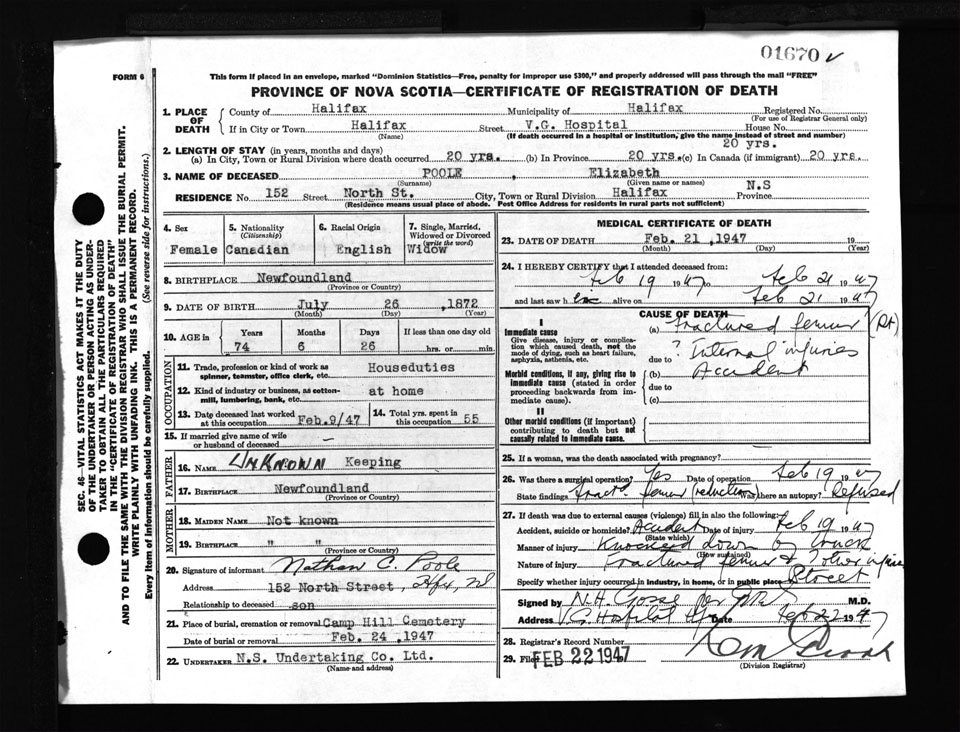 01670 ✓
FORM 6
This form if placed in an envelope, marked "Dominion Statistics—Free, penalty for improper use $300," and properly addressed will pass through the mail "FREE"
PROVINCE OF NOVA SCOTIA—CERTIFICATE OF REGISTRATION OF DEATH
SEC. 46—VITAL STATISTICS ACT MAKES IT THE DUTY
OF THE UNDERTAKER OR PERSON ACTING AS UNDER-
TAKER TO OBTAIN ALL THE PARTICULARS REQUIRED
IN THE "CERTIFICATE OF REGISTRATION OF DEATH"
AND TO FILE THE SAME WITH THE DIVISION REGISTRAR WHO SHALL ISSUE THE BURIAL PERMIT.
WRITE PLAINLY WITH UNFADING INK. THIS IS A PERMANENT RECORD.
Every item of information should be carefully supplied. (See reverse side for instructions.)
1. PLACE OF DEATH
County of Halifax Municipality of Halifax Registered No.
(For use of Registrar General only)
If in City or Town Halifax Street V.G. Hospital House No.
(Name) (If death occurred in a hospital or institution, give the name instead of street and number)
20 yrs.
2. LENGTH OF STAY (in years, months and days)
(a) In City, Town or Rural Division where death occurred 20 yrs. (b) In Province 20 yrs. (c) In Canada (if immigrant) 20 yrs.
3. NAME OF DECEASED POOLE , Elizabeth
(Surname) (Given name or names)
RESIDENCE No. 152 Street North St. City, Town or Rural Division Halifax Province N.S
(Residence means usual place of abode. Post Office Address for residents in rural parts not sufficient)
4. Sex
Female
5. Nationality
(Citizenship)
Canadian
6. Racial Origin
English
7. Single, Married,
Widowed or Divorced
(write the word)
Widow
8. BIRTHPLACE Newfoundland
(Province or Country)
9. DATE OF BIRTH July 26 ,1872
(Month) (Day) (Year)
10. AGE in
Years Months Days If less than one day old
74 6 26 hrs. or min.
OCCUPATION
11. Trade, profession or kind of work as
spinner, teamster, office clerk, etc. Houseduties
12. Kind of industry or business, as cotton-
mill, lumbering, bank, etc. at home
13. Date deceased last worked
at this occupation Feb.9/47
14. Total yrs. spent in
this occupation 55
15. If married give name of wife
or husband of deceased –
FATHER
16. NAME UNKNOWN Keeping
17. BIRTHPLACE Newfoundland
(Province or Country)
MOTHER
18. MAIDEN NAME Not known
19. BIRTHPLACE " "
(Province or Country)
20. Signature of informant Nathan C. Poole
Address 152 North Street, Hfx, NS
Relationship to deceased son
21. Place of burial, cremation or removal Camp Hill Cemetery
Date of burial or removal Feb. 24 ,1947
22. UNDERTAKER N.S. Undertaking Co. Ltd.
(Name and address)
MEDICAL CERTIFICATE OF DEATH
23. DATE OF DEATH Feb. 21 ,1947 19
(Month) (Day) (Year)
24. I HEREBY CERTIFY that I attended deceased from:
Feb 19 1947 to Feb 21 1947
and last saw h er alive on Feb 21 1947
CAUSE OF DEATH
I
Immediate cause
Give disease, injury or complica-
tion which caused death, not the
mode of dying, such as heart failure,
asphyxia, asthenia, etc.
(a) Fractured femur (Rt)
due to ? Internal injuries
Morbid conditions, if any, giving rise to
immediate cause (stated in order
proceeding backwards from im-
mediate cause).
(b) Accident
due to
(c)
II
Other morbid conditions (if important)
contributing to death but not
causally related to immediate cause.
25. If a woman, was the death associated with pregnancy?
26. Was there a surgical operation? Yes Date of operation Feb 19 1947
State findings Fract. femur (reduction) Was there an autopsy? Refused
27. If death was due to external causes (violence) fill in also the following:
Accident, suicide or homicide? Accident Date of injury Feb 19 1947
(State which)
Manner of injury Knocked down by truck
(How sustained)
Nature of injury Fractured femur & ? other injuries
Specify whether injury occurred in industry, in home, or in public place Street
Signed by N.H. Gosse per M.D.
Address V.G. Hospital Hfx Date Feb 22 1947
28. Registrar's Record Number
29. Filed FEB 22 1947
(Division Registrar)